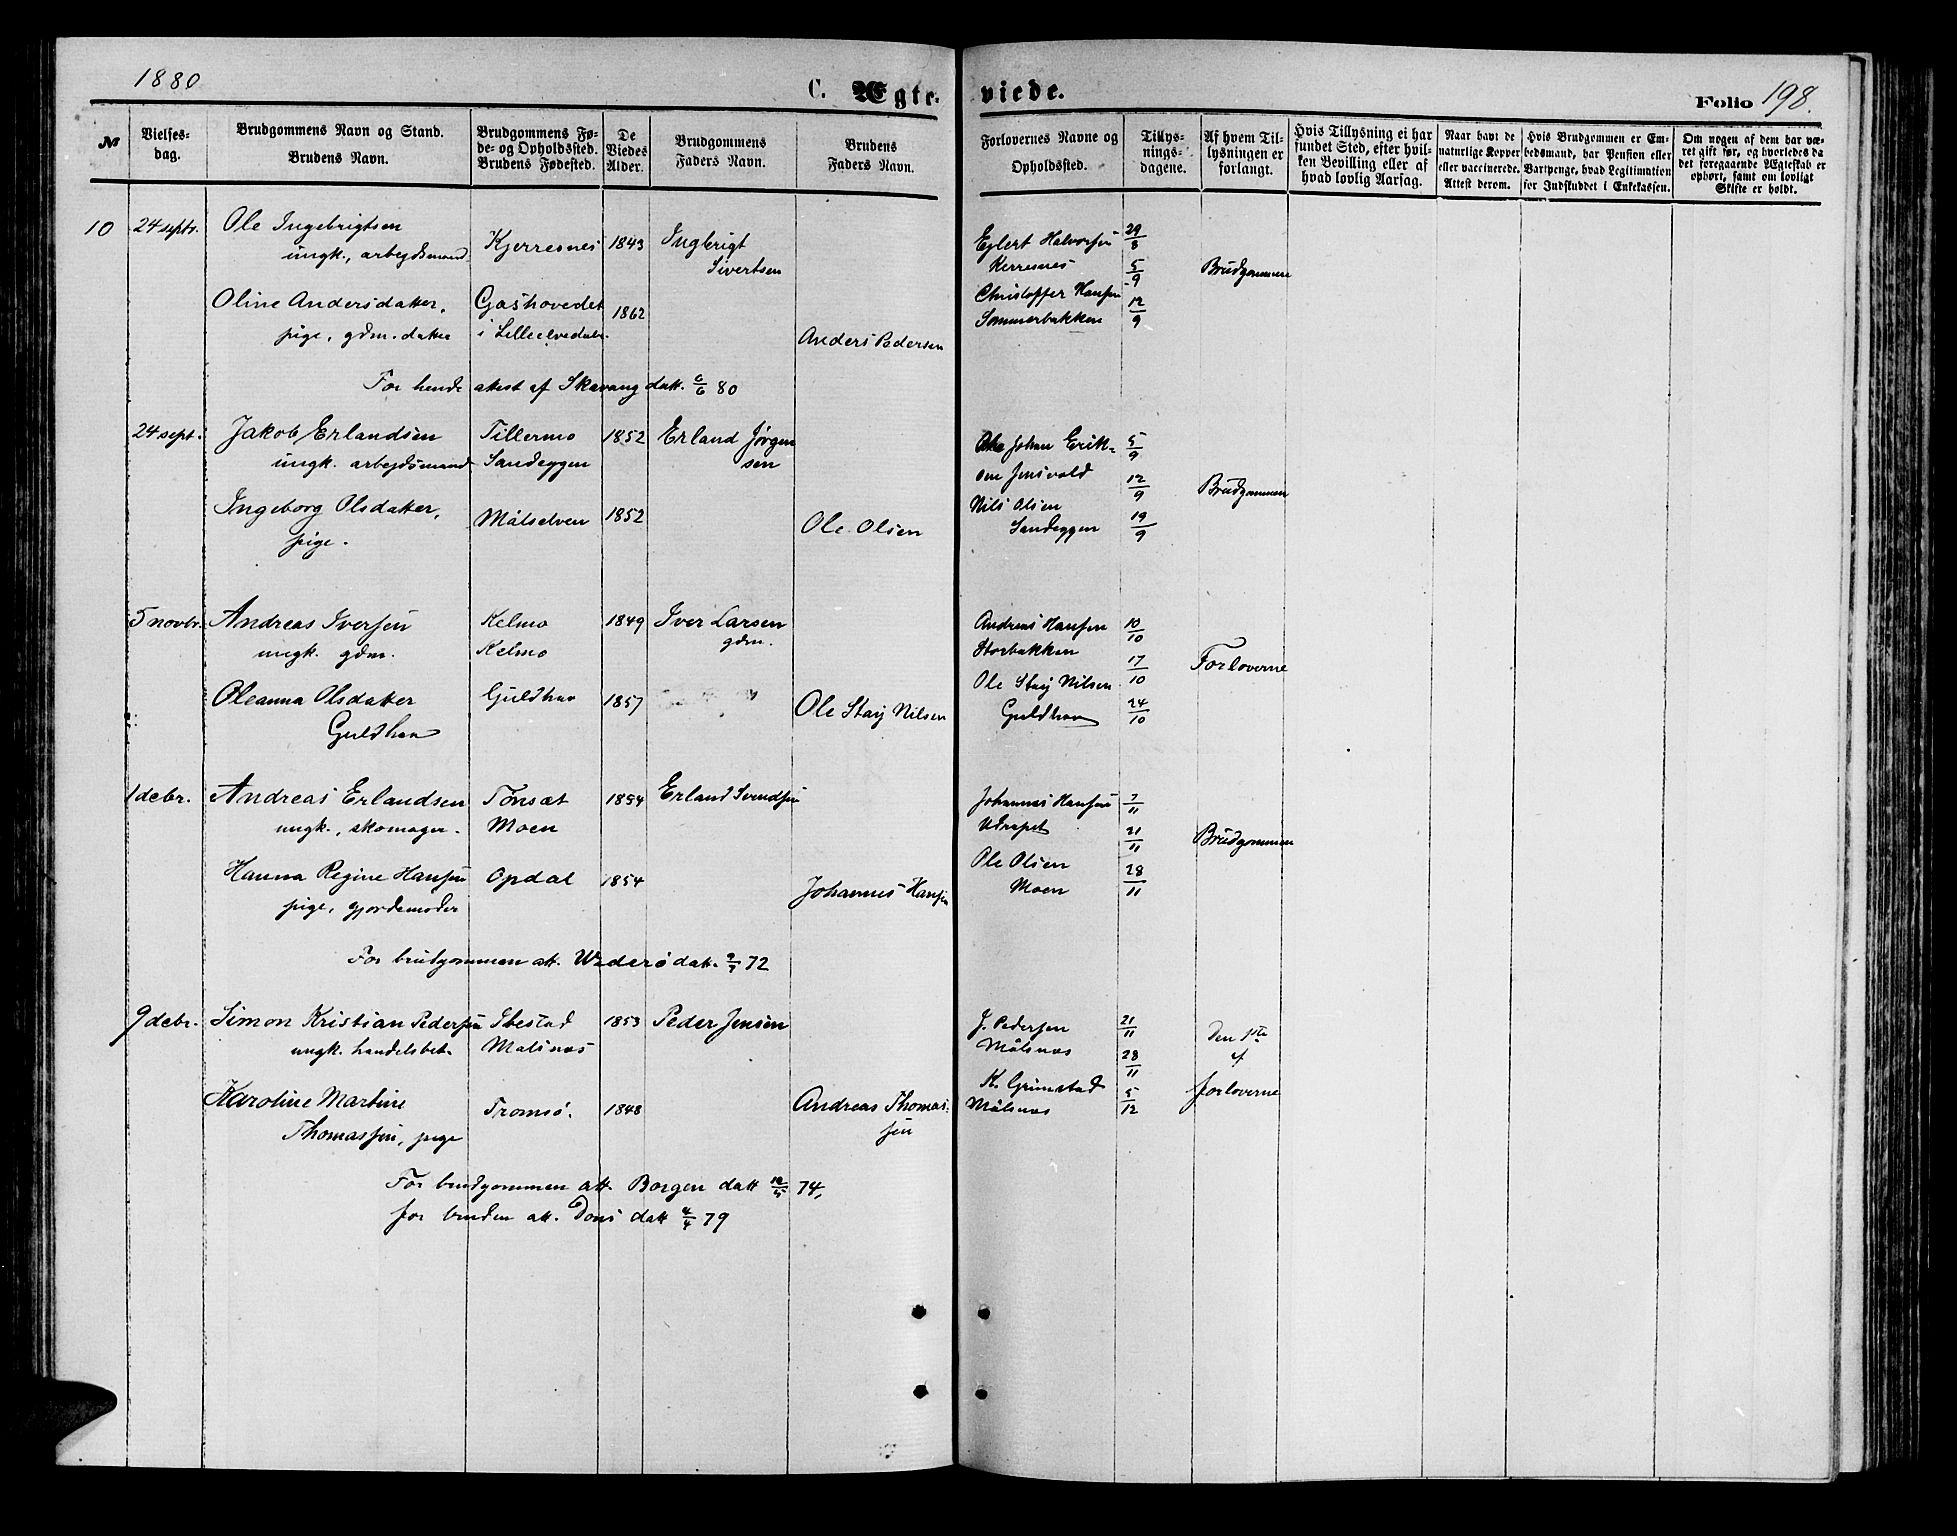 1880
C. Ægte-
viede.
Folio 198.
№
Vielses-
dag.
Brudgommens Navn og Stand.
Brudens Navn.
Brudgommens Fø-
de- og Opholdssted.
Brudens Fødested.
De
Viedes
Alder.
Brudgommens
Faders Navn.
Brudens
Faders Navn.
Forlovernes Navne og
Opholdssted.
Tillys-
nings-
dagene.
Af hvem Til-
lysningen er
forlangt.
Hvis Tillysning ei har
fundet Sted, efter hvil-
ken Bevilling eller af
hvad lovlig Aarsag.
Naar havt de
naturlige Kopper
eller vaccinerede.
Attest derom.
Hvis Brudgommen er Em-
bedsmand, har Pension eller
Vartpenge, hvad Legitimation
for Indskuddet i Enkekassen.
Om nogen af dem har væ-
ret gift før, og hvorledes da
det foregaaende Ægteskab er
ophørt, samt om lovligt
Skifte er holdt.
10
24 septr.
Ole Ingebrigtsen
ungk., arbejdsmand
Kjerresnes
1843
Ingbrigt
Sivertsen
Ejlert Halvorsen
Kerresnes
Christoffer Hansen
Sommerbakken
29/8
5/9
12/9
Brudgommen
Oline Andersdatter,
pige, gdm. datter
Gashovedet
i Lilleelvedalen.
1862
Anders Pedersen
For hende attest af Skavang datt. 6/6 80
24 sept.
Jakob Erlandsen
ungk. arbejdsmand
Tillermo
Sandeggen
1852
Erland Jørgen
sen
Johan Erik-
sen Jensvold
Nils Olsen
Sandeggen
5/9
12/9
19/9
Brudgommen
Ingeborg Olsdatter,
pige.
Målselven
1852
Ole Olsen
5 novbr.
Andreas Iversen
ungk. gdm.
Kelmo
Kelmo
1849
Iver Larsen
gdm.
Andreas Hansen
Storbakken
Ole Staij Nilsen
Guldhav
10/10
17/10
24/10
Forloverne
Oleanna Olsdatter
Guldhav
Guldhav
1857
Ole Staij Nilsen
1 decbr.
Andreas Erlandsen
ungk., skomager.
Tønsæt
Moen
1854
Erland Svendsen
Johannes Hansen
Ole Olsen
Moen
7/11
21/11
28/11
Brudgommen
Hanna Regine Hansen
pige, gjordemoder
Opdal
1854
Johannes Hansen
For brudgommen att. datt. 72
9 decbr.
Simon Kristian Pedersen
ungk. handelsbet.
Ibestad
Målsnæs
1853
Peder Jensen
J. Pedersen
Målsnæs
K. Grimstad
Målsnæs
21/11
28/11
5/12
Den 1ste
af
forloverne
Karoline Martine
Thomassen, pige
Tromsø.
1848
Andreas Thomas-
sen
For brudgommen att. Borgen datt 74,
for bruden att. Dons datt 4/4 79